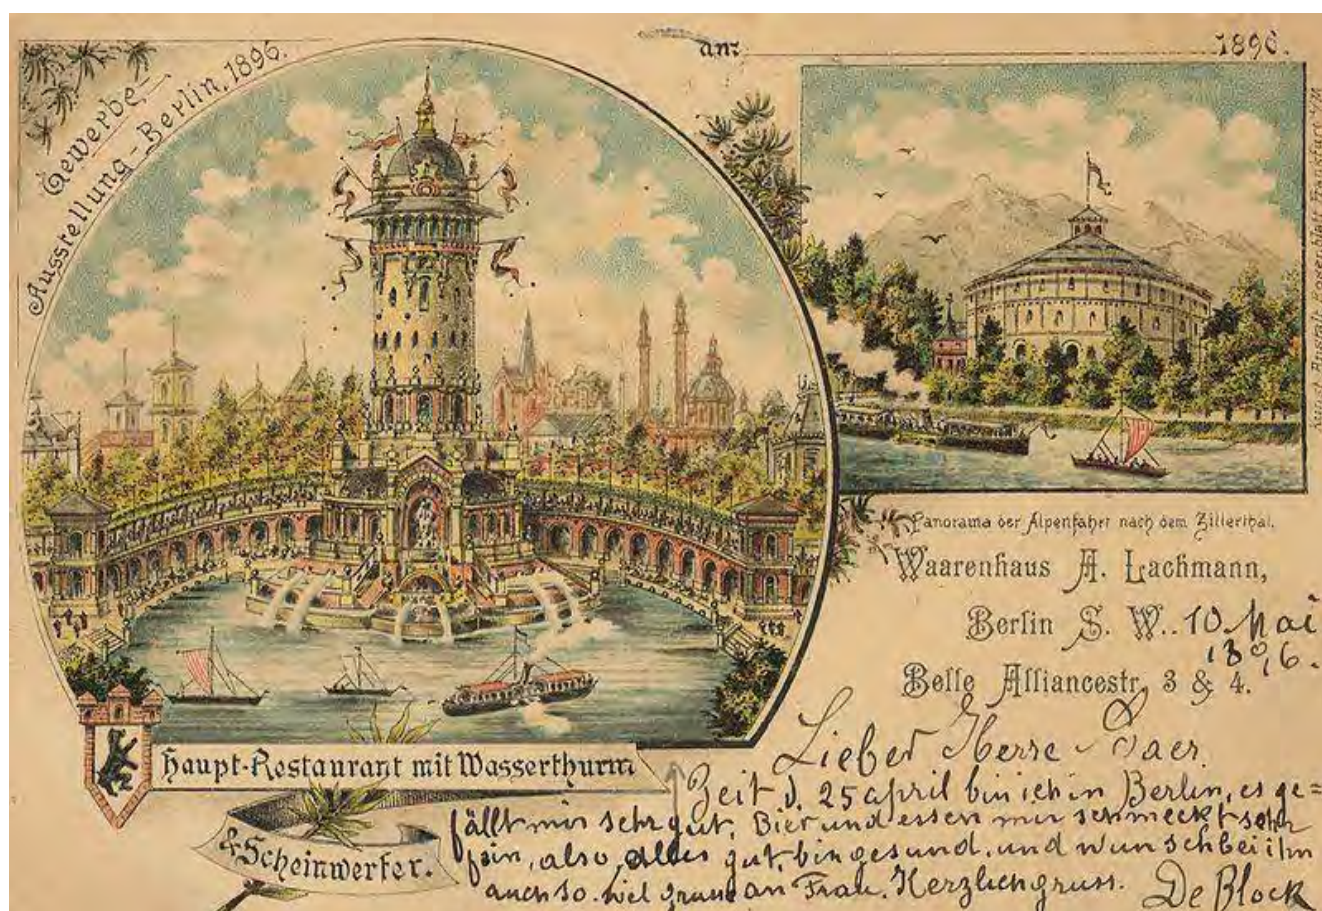 Gewerbe-
Ausstellung-Berlin, 1896.
am
1896.
Panorama der Alpenfahrt nach dem Zillerthal.
Waarenhaus A. Lachmann,
Berlin S. W.. 10 Mai
1896.
Belle Alliancestr. 3 & 4.
Haupt-Restaurant mit Wasserthurm
& Scheinwerfer.
Lieber Herre
Zeit d. 25 april bin ich in Berlin, es ge=
fällt mir sehr gut, Bier und essen mir schmeckt sehr
fein, also alles gut, bin gesund, und wunsch bei ihn
auch so. viel gruse an Frau. Herzlich gruss. De Block